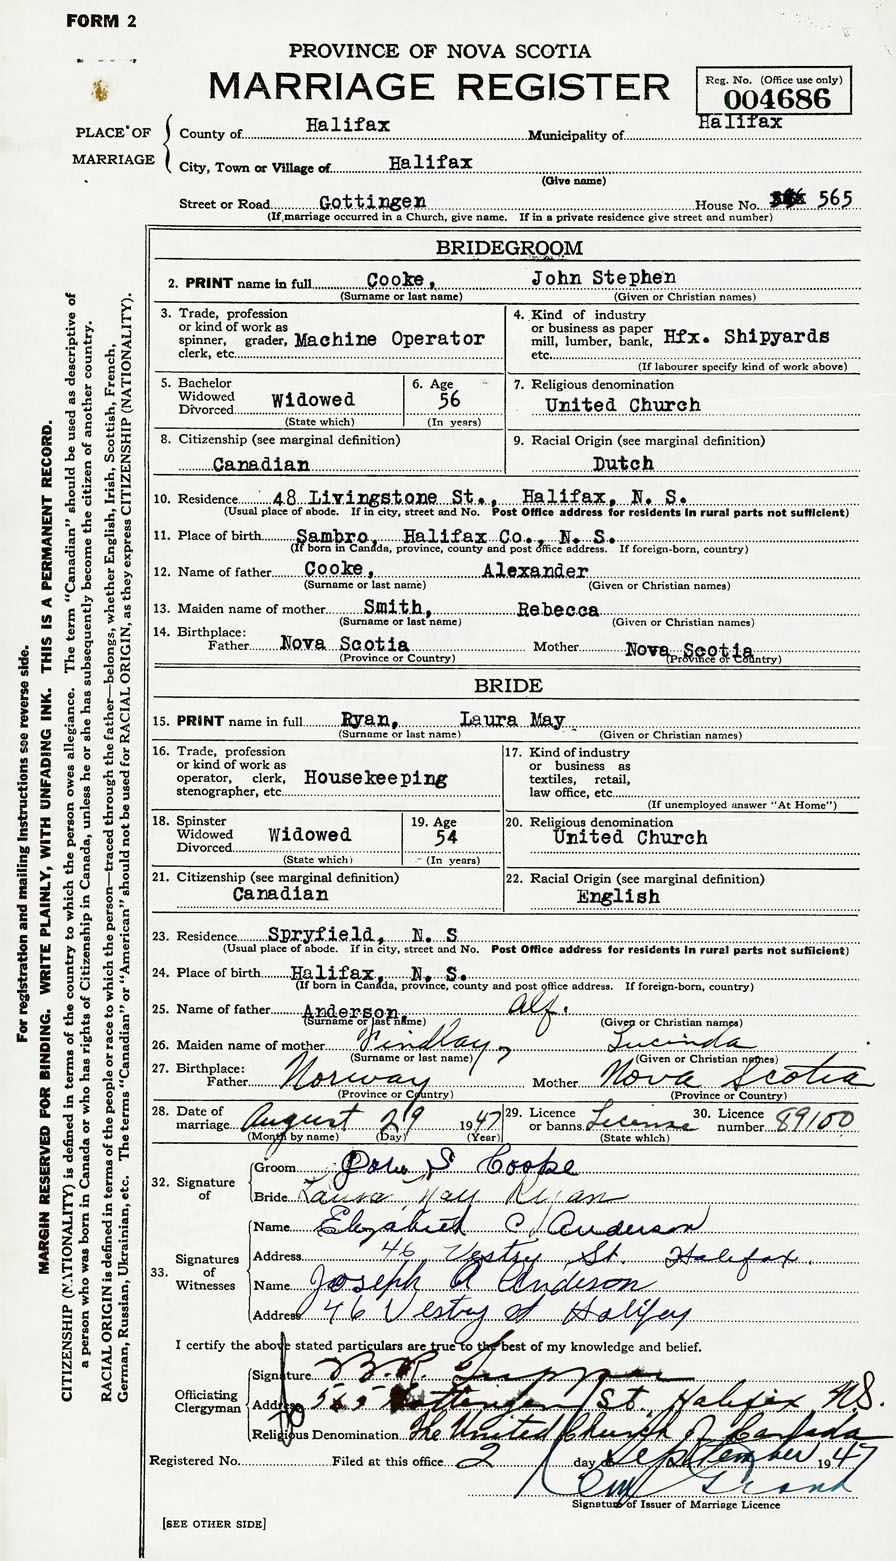 FORM 2
PROVINCE OF NOVA SCOTIA
MARRIAGE REGISTER
Reg. No. (Office use only)
004686
PLACE OF MARRIAGE
County of Halifax Municipality of Halifax
City, Town or Village of Halifax
(Give name)
Street or Road Gottingen House No. 565
(If marriage occurred in a Church, give name. If in a private residence give street and number)
BRIDEGROOM
2. PRINT name in full Cooke, John Stephen
(Surname or last name) (Given or Christian names)
3. Trade, profession
or kind of work as
spinner, grader,
clerk, etc. Machine Operator
4. Kind of industry
or business as paper
mill, lumber, bank,
etc. Hfx. Shipyards
(If labourer specify kind of work above)
5. Bachelor
Widowed
Divorced Widowed
(State which)
6. Age
56
(In years)
7. Religious denomination
United Church
8. Citizenship (see marginal definition)
Canadian
9. Racial Origin (see marginal definition)
Dutch
10. Residence 48 Livingstone St., Halifax, N. S.
(Usual place of abode. If in city, street and No. Post Office address for residents in rural parts not sufficient)
11. Place of birth Sambro, Halifax Co., N. S.
(If born in Canada, province, county and post office address. If foreign-born, country)
12. Name of father Cooke, Alexander
(Surname or last name) (Given or Christian names)
13. Maiden name of mother Smith, Rebecca
(Surname or last name) (Given or Christian names)
14. Birthplace:
Father Nova Scotia Mother Nova Scotia
(Province or Country) (Province or Country)
BRIDE
15. PRINT name in full Ryan, Laura May
(Surname or last name) (Given or Christian names)
16. Trade, profession
or kind of work as
operator, clerk,
stenographer, etc. Housekeeping
17. Kind of industry
or business as
textiles, retail,
law office, etc.
(If unemployed answer "At Home")
18. Spinster
Widowed
Divorced Widowed
(State which)
19. Age
54
(In years)
20. Religious denomination
United Church
21. Citizenship (see marginal definition)
Canadian
22. Racial Origin (see marginal definition)
English
23. Residence Spryfield, N. S
(Usual place of abode. If in city, street and No. Post Office address for residents in rural parts not sufficient)
24. Place of birth Halifax, N. S.
(If born in Canada, province, county and post office address. If foreign-born, country)
25. Name of father Anderson, Alf.
(Surname or last name) (Given or Christian names)
26. Maiden name of mother Findlay, Lucinda
(Surname or last name) (Given or Christian names)
27. Birthplace:
Father Norway Mother Nova Scotia
(Province or Country) (Province or Country)
28. Date of
marriage August 29 1947
(Month by name) (Day) (Year)
29. Licence
or banns License
(State which)
30. Licence
number 89100
32. Signature of
Groom John S Cooke
Bride Laura May Ryan
33. Signatures of Witnesses
Name Elizabeth C Anderson
Address 46 Vestry St. Halifax.
Name Joseph A Anderson
Address 46 Vestry St Halifax
I certify the above stated particulars are true to the best of my knowledge and belief.
Officiating Clergyman
Signature B.R. Tupper
Address 565 Gottingen St. Halifax N.S.
Religious Denomination The United Church of Canada
Registered No. Filed at this office 2 day of September 1947
Signature of Issuer of Marriage Licence
[SEE OTHER SIDE]
For registration and mailing instructions see reverse side.
MARGIN RESERVED FOR BINDING. WRITE PLAINLY, WITH UNFADING INK. THIS IS A PERMANENT RECORD.
CITIZENSHIP (NATIONALITY) is defined in terms of the country to which the person owes allegiance. The term "Canadian" should be used as descriptive of
a person who was born in Canada or who has rights of Citizenship in Canada, unless he or she has subsequently become the citizen of another country.
RACIAL ORIGIN is defined in terms of the people or race to which the person—traced through the father—belongs, whether English, Irish, Scottish, French,
German, Russian, Ukrainian, etc. The terms "Canadian" or "American" should not be used for RACIAL ORIGIN, as they express CITIZENSHIP (NATIONALITY).